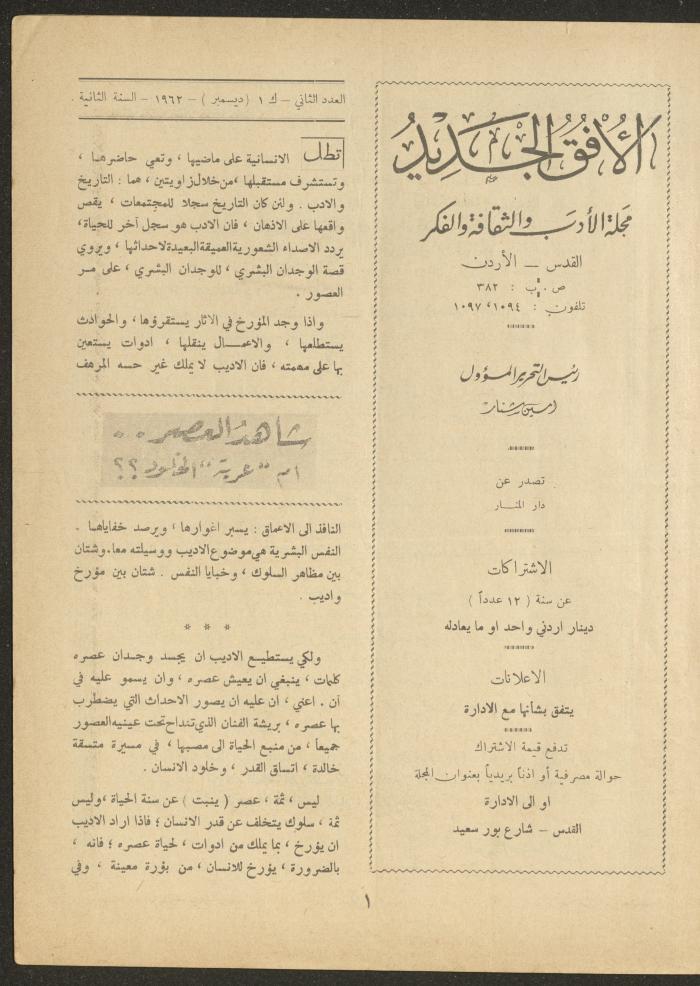 الأفق الجديد
مجلة الأدب والثقافة والفكر
القدس — الأردن
ص . ب : ٣٨٢
تلفون : ١٠٩٤ ، ١٠٩٧
رئيس التحرير المسؤول
امين شنار
تصدر عن
دار المنار
الاشتراكات
عن سنة ( ١٢ عدداً )
دينار اردني واحد او ما يعادله
الاعلانات
يتفق بشأنها مع الادارة
تدفع قيمة الاشتراك
حوالة مصرفية أو اذناً بريدياً بعنوان المجلة
او الى الادارة
القدس – شارع بور سعيد
العدد الثاني – ك ١ ( ديسمبر ) – ١٩٦٢ – السنة الثانية .
تطل الانسانية على ماضيها ، وتعي حاضرها ،
وتستشرف مستقبلها ،من خلال زاويتين ، هما : التاريخ
والادب . ولئن كان التاريخ سجلا للمجتمعات ، يقص
واقعها على الاذهان ، فان الادب هو سجل آخر للحياة،
يردد الاصداء الشعورية العميقة البعيدة لاحداثها ، ويروي
قصة الوجدان البشري ، للوجدان البشري ، على مر
العصور .
واذا وجد المؤرخ في الاثار يستقرؤها ، والحوادث
يستطلعها ، والاعمال ينقلها ، ادوات يستعين
بها على مهمته ، فان الاديب لا يملك غير حسه المرهف
شاهد العصر . .
ام "عربة" الخلود ؟؟
النافذ الى الاعماق : يسبر اغوارها ، ويرصد خفاياها .
النفس البشرية هي موضوع الاديب ووسيلته معا. وشتان
بين مظاهر السلوك ، وخبايا النفس . شتان بين مؤرخ
واديب .
* * *
ولكي يستطيع الاديب ان يجسد وجدان عصره
كلمات ، ينبغي ان يعيش عصره ، وان يسمو عليه في
آن . اعني ، ان عليه ان يصور الاحداث التي يضطرب
بها عصره ، بريشة الفنان الذي تنداح تحت عينيه العصور
جميعاً ، من منبع الحياة الى مصبها ، في مسيرة متسقة
خالدة ، اتساق القدر ، وخلود الانسان .
ليس ، ثمة ، عصر ( ينبت ) عن سنة الحياة ،وليس
ثمة ، سلوك يتخلف عن قدر الانسان ؛ فاذا اراد الاديب
ان يؤرخ ، بما يملك من ادوات ، لحياة عصره ؛ فانه ،
بالضرورة ، يؤرخ للانسان ، من بؤرة معينة ، وفي
١